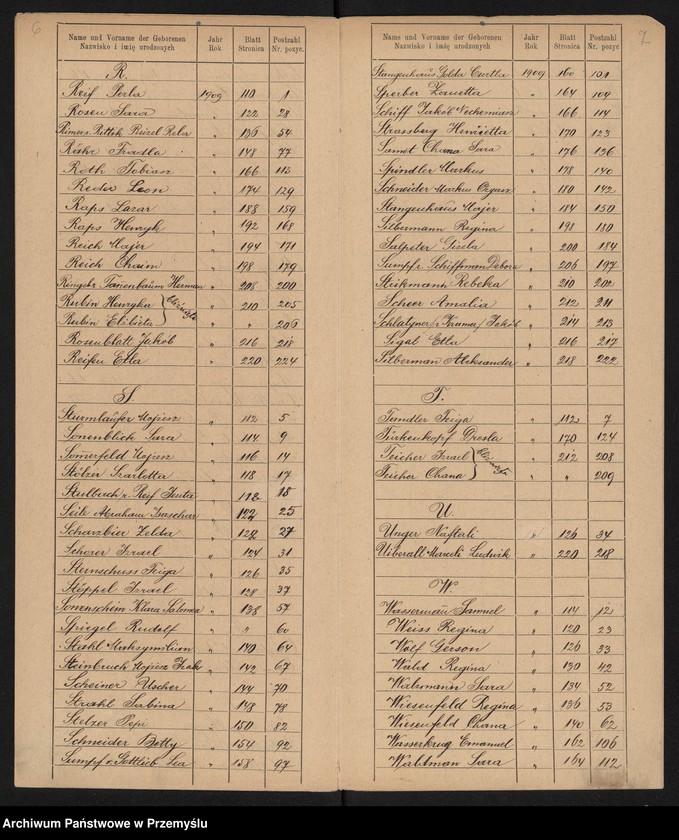 6
Name und Vorname der Geborenen Jahr Blatt Postzahl
Nazwisko i imię urodzonych Rok Stronica Nr. pozyc.
R.
Reif Perla 1909 110 1
Rosen Sara " 122 28
Rimers Rittek Reizel " 136 54
Fradla " 148 77
Roth Tobiasz " 166 113
Reder Leon " 174 129
Raps Lazar " 188 159
Raps Henryk " 192 168
Reich Majer " 194 171
Reich Chaim " 198 179
Tanenbaum Herman " 208 200
Rubin Henryka " 210 205
Rubin Elżbieta " " 206
Rosenblatt Jakób " 216 218
Reifen Etla " 220 224
S
Sturmlaufer Mojżesz " 112 5
Sonenblich Sara " 114 9
Somerfeld Mojżesz " 116 14
Stölzer Szarlotta " 118 17
Reif " 118 18
Abraham " 122 25
Scharzbier Zelda " 122 27
Schorer Izrael " 124 31
Sternschuss Feiga " 126 35
Stöppel Izrael " 128 37
Sonenschein Klara Salomea " 138 57
Spiegel Rudolf " " 60
Stahl Maksymilian " 140 64
Steinbruch Mojżesz " 142 67
Scheiner Uscher " 144 70
Strahl Sabina " 148 78
Stelzer Pepi " 150 82
Schneider Betty " 154 92
Sumpf v. Gottlieb Lea " 158 97
7
Name und Vorname der Geborenen Jahr Blatt Postzahl
Nazwisko i imię urodzonych Rok Stronica Nr. pozyc.
Stangenhaus Golda 1909 160 101
Sperber " 164 109
Schiff Jakób " 166 114
Strassberg Henrietta " 170 123
Samet Chana Sara " 176 136
Spindler Markus " 178 140
Schneider Markus " 180 142
Stangenhaus Majer " 184 150
Silbermann Regina " 198 180
Salpeter Gisela " 200 184
Sumpf v. Schiffman Debora " 206 197
Steikmann Rebeka " 210 202
Scheer Amalia " 212 211
Schlatyner v. Kramer Jakób " 214 213
Sigal Etla " 216 217
Silberman Aleksander " 218 222
T.
Tendler Feiga " 112 7
Türkenkopf " 170 124
Teicher Izrael " 212 208
Teicher Chana " " 209
U.
Unger Naftali " 126 34
Uiberall Marceli Ludwik " 220 218
W.
Wasserman Samuel " 114 12
Weiss Regina " 120 23
Wolf Gerson " 126 33
Wald Regina " 130 42
Sara " 134 52
Wiesenfeld Regina " 136 53
Wiesenfeld Chana " 140 62
Wasserkrug Emanuel " 162 106
Waldman Sara " 164 112
Archiwum Państwowe w Przemyślu